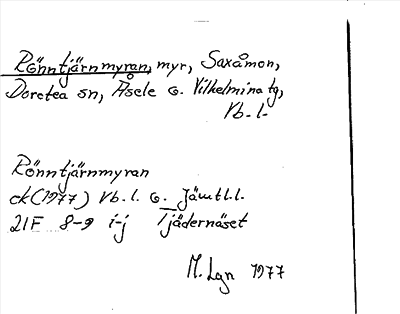 Rönntjärnmyran, myr, Saxåmon,
Dorotea sn, Åsele o. Vilhelmina tg,
Vb. l.
Rönntjärnmyran
ek (1977) Vb. l. o. Jämtl. l.
21F 8-9 i-j Tjädernäset
M. Lgn 1977